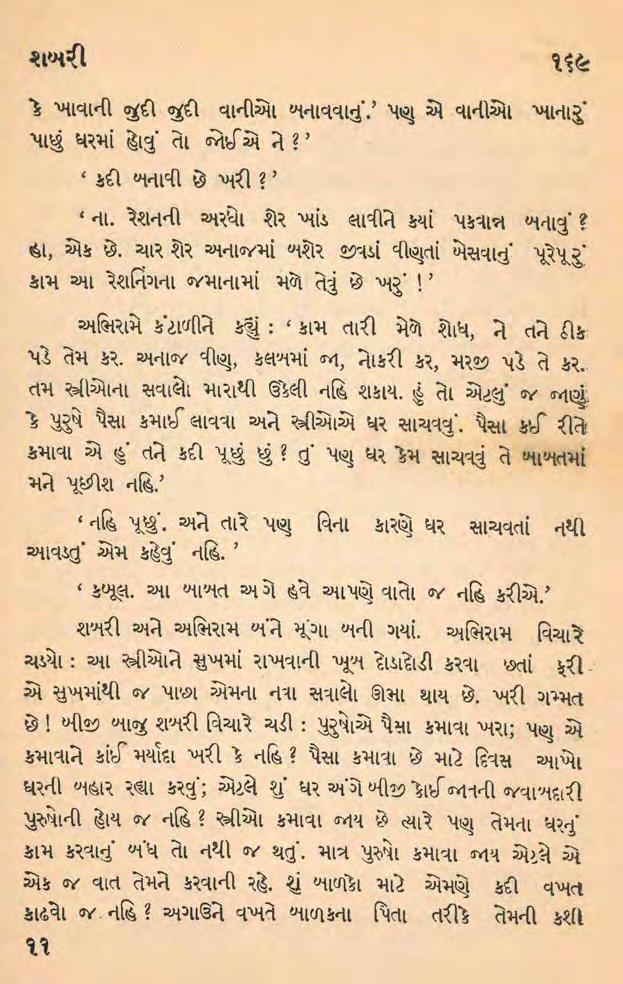 શબરી ૧૬૯
કે ખાવાની જુદી જુદી વાનીઓ બનાવવાનું.’ પણ એ વાનીઓ ખાનારું
પાછું ઘરમાં હોવું તો જોઈએ ને ?’
‘ કદી બનાવી છે ખરી ?’
‘ ના. રેશનની અરધો શેર ખાંડ લાવીને કયાં પકવાન્ન બનાવું ?
હા, એક છે. ચાર શેર અનાજમાં બશેર જીવડાં વીણતાં બેસવાનું પૂરેપૂરું
કામ આ રેશનિંગના જમાનામાં મળે તેવું છે ખરું !’
અભિરામે કંટાળીને કહ્યું : ‘ કામ તારી મેળે શોધ, ને તને ઠીક
પડે તેમ કર. અનાજ વીણ, કલબમાં જા, નોકરી કર, મરજી પડે તે કર.
તમ સ્ત્રીઓના સવાલો મારાથી ઉકેલી નહિ શકાય. હું તો એટલું જ જાણું
કે પુરુષે પૈસા કમાઈ લાવવા અને સ્ત્રીઓએ ઘર સાચવવું. પૈસા કઈ રીતે
કમાવા એ હું તને કદી પૂછું છું ? તું પણ ઘર કેમ સાચવવું તે બાબતમાં
મને પૂછીશ નહિ.’
‘ નહિ પૂછું. અને તારે પણ વિના કારણે ઘર સાચવતાં નથી
આવડતું એમ કહેવું નહિ. ’
‘ કબૂલ. આ બાબત અગે હવે આપણે વાતો જ નહિ કરીએ.’
શબરી અને અભિરામ બંને મૂંગા બની ગયાં. અભિરામ વિચારે
ચડયો : આ સ્ત્રીઓને સુખમાં રાખવાની ખૂબ દોડાદોડી કરવા છતાં ફરી
એ સુખમાંથી જ પાછા એમના નવા સવાલો ઊભા થાય છે. ખરી ગમ્મત
છે ! બીજી બાજુ શબરી વિચારે ચડી : પુરુષોએ પૈસા કમાવા ખરા; પણ એ
કમાવાને કાંઈ મર્યાદા ખરી કે નહિ ? પૈસા કમાવા છે માટે દિવસ આખો
ઘરની બહાર રહ્યા કરવું; એટલે શું ઘર અંગે બીજી કોઈ જાતની જવાબદારી
પુરુષોની હોય જ નહિ ? સ્ત્રીઓ કમાવા જાય છે ત્યારે પણ તેમના ઘરનું
કામ કરવાનું બંધ તો નથી જ થતું. માત્ર પુરુષો કમાવા જાય એટલે એ
એક જ વાત તેમને કરવાની રહે. શું બાળકો માટે એમણે કદી વખત
કાઢવો જ નહિ ? અગાઉને વખતે બાળકના પિતા તરીકે તેમની કશી
૧૧